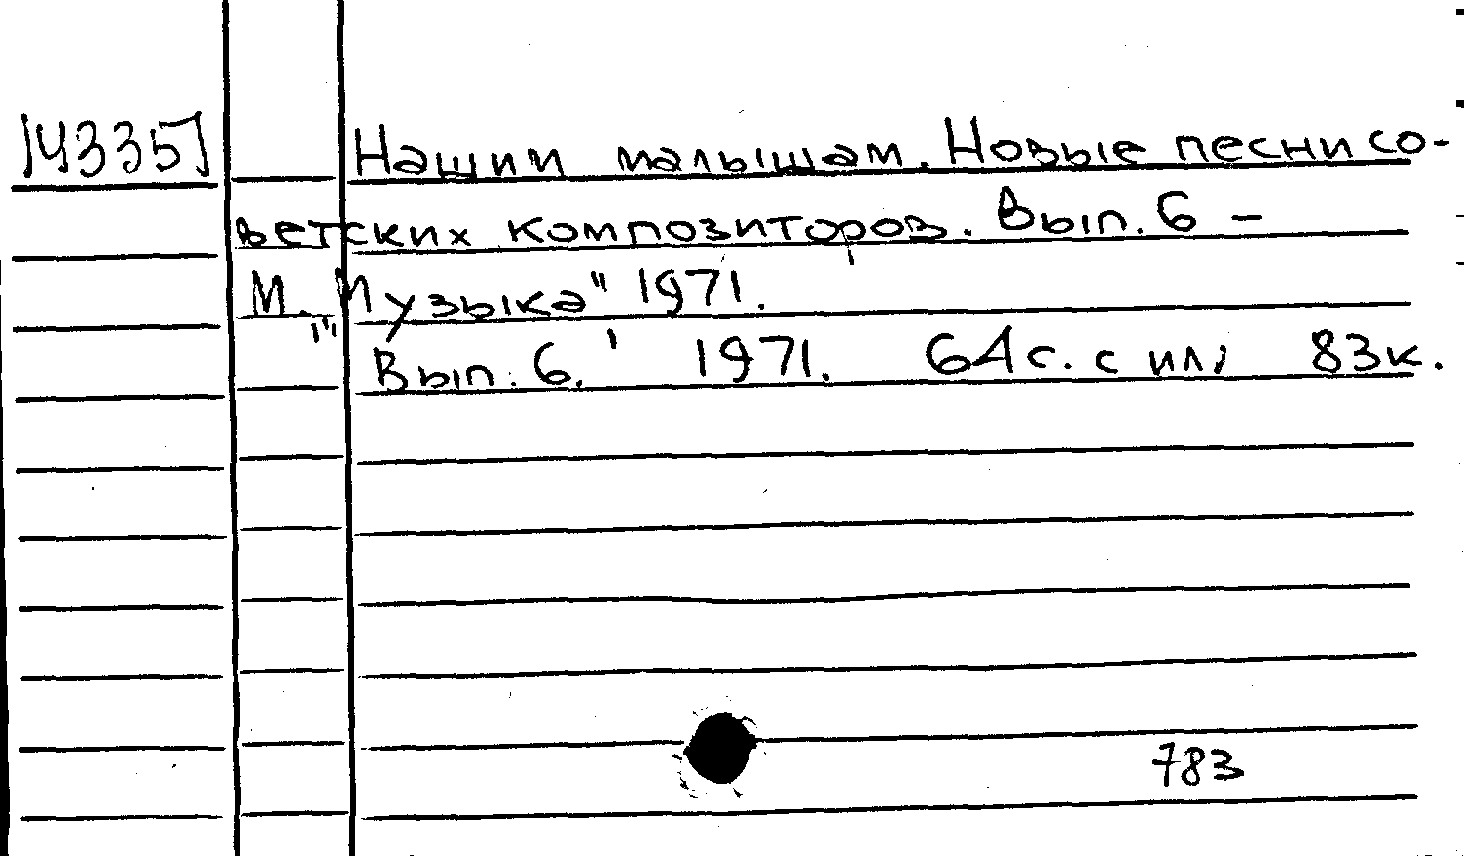 14335] Нашим малышам. Новые песни со-
ветских композиторов. Вып. 6 –
М. „Музыка" 1971.
Вып. 6. 1971. 64 с. с ил; 83к.
783